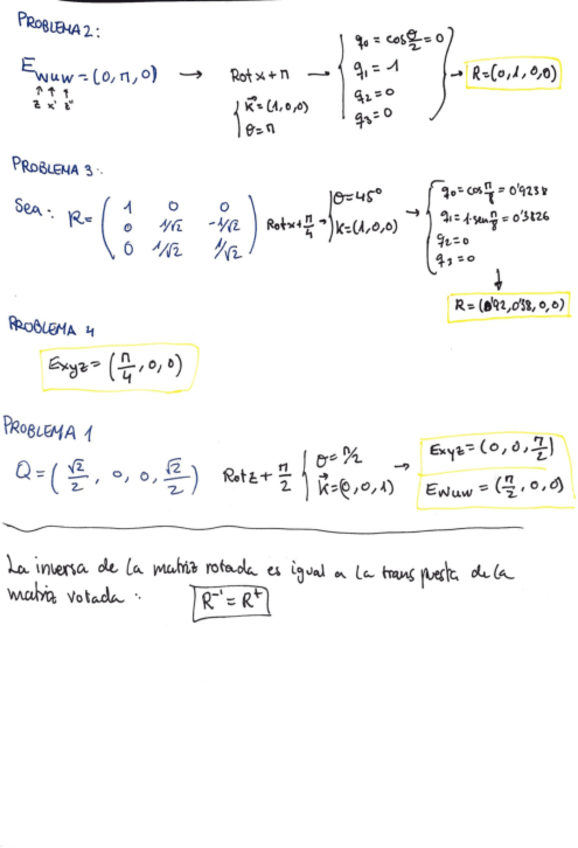 PROBLEMA 2:
E_wuw = (0, π, 0) → Rot x + π → { q0 = cos θ/2 = 0 → R = (0, 1, 0, 0)
↑ ↑ ↑
z x' z''
K⃗ = (1, 0, 0)
θ = π
q1 = 1
q2 = 0
q3 = 0
PROBLEMA 3:
Sea: R = ( 1 0 0
0 1/√2 -1/√2
0 1/√2 1/√2 )
Rot x + π/4 → { θ = 45º
K = (1, 0, 0)
→ { q0 = cos π/8 = 0'9238
q1 = 1·sen π/8 = 0'3826
q2 = 0
q3 = 0
↓
R = (0'92, 0'38, 0, 0)
PROBLEMA 4
Exyz = (π/4, 0, 0)
PROBLEMA 1
Q = (√2/2, 0, 0, √2/2) Rot z + π/2 { θ = π/2
K⃗ = (0, 0, 1)
→ Exyz = (0, 0, π/2)
Ewuw = (π/2, 0, 0)
La inversa de la matriz rotada es igual a la transpuesta de la
matriz votada :
R⁻¹ = R^t